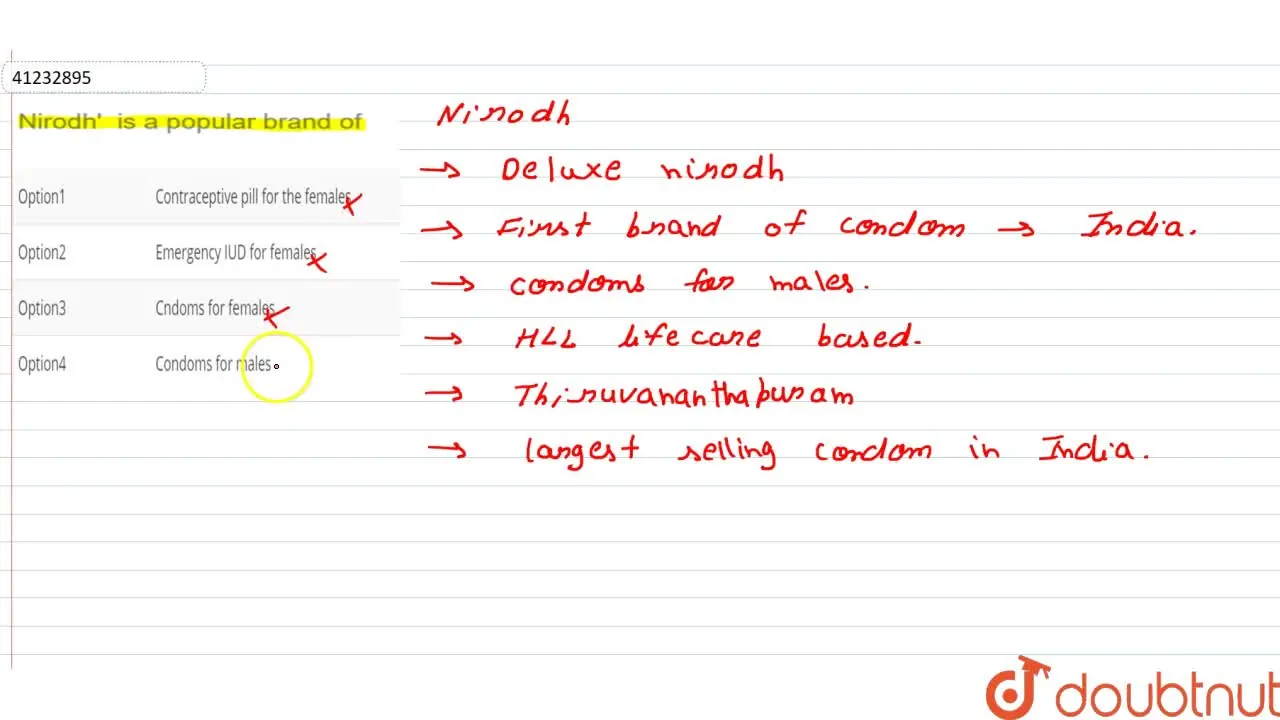 41232895
Nirodh' is a popular brand of
Option1 Contraceptive pill for the females
Option2 Emergency IUD for females
Option3 Cndoms for females
Option4 Condoms for males
Nirodh
→ Deluxe nirodh
→ First brand of condom → India.
→ condoms for males.
→ HLL lifecare based.
→ Thiruvananthapuram
→ largest selling condom in India.
doubtnut